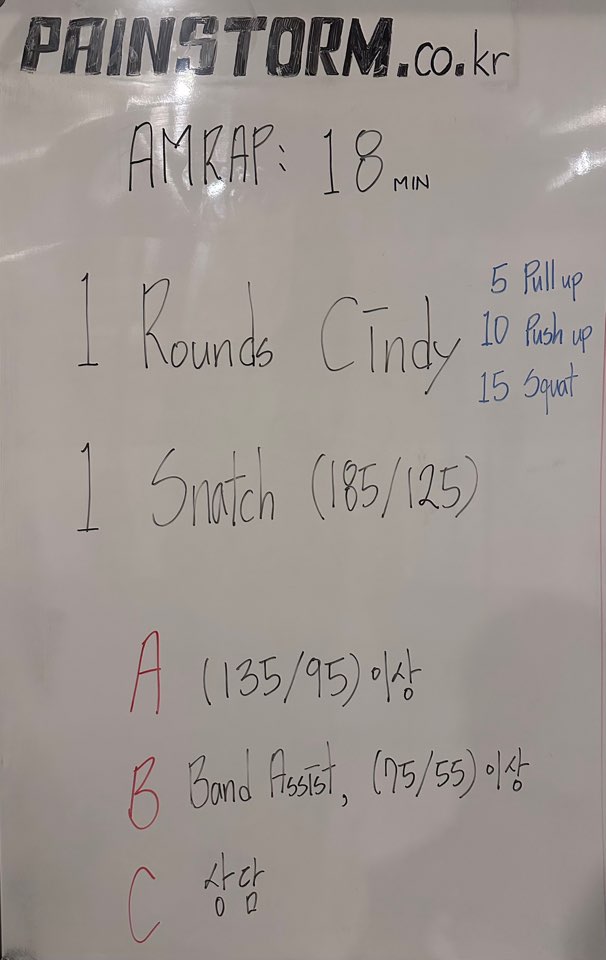 PAINSTORM.co.kr
AMRAP: 18 MIN
1 Rounds Cindy
5 Pull up
10 Push up
15 Squat
1 Snatch (185/125)
A (135/95) 이상
B Band Assist, (75/55) 이상
C 상담